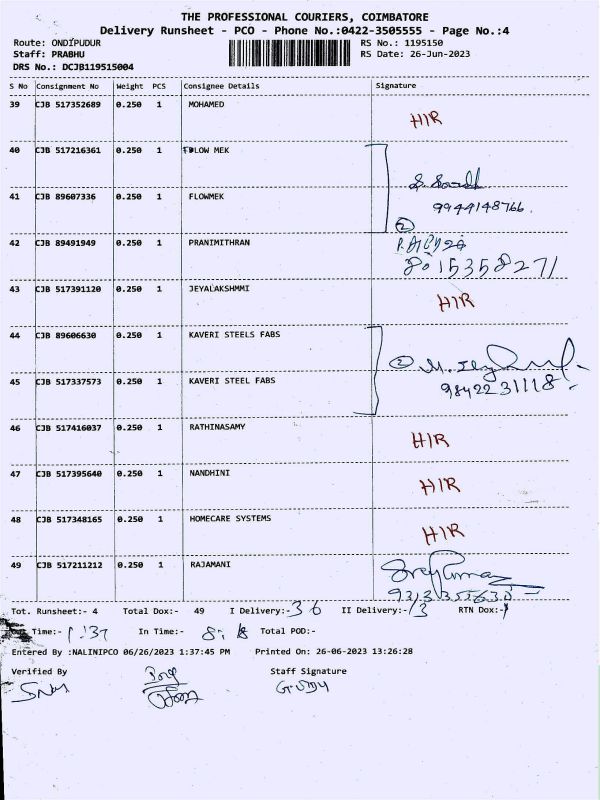 THE PROFESSIONAL COURIERS, COIMBATORE
Delivery Runsheet - PCO - Phone No.:0422-3505555 - Page No.:4
Route: ONDIPUDUR RS No.: 1195150
Staff: PRABHU RS Date: 26-Jun-2023
DRS No.: DCJB119515004
S No Consignment No Weight PCS Consignee Details Signature
39 CJB 517352689 0.250 1 MOHAMED HIR
40 CJB 517216361 0.250 1 FLOW MEK
41 CJB 89607336 0.250 1 FLOWMEK
9944148766.
2
42 CJB 89491949 0.250 1 PRANIMITHRAN
8015358271
43 CJB 517391120 0.250 1 JEYALAKSHMMI HIR
44 CJB 89606630 0.250 1 KAVERI STEELS FABS
2
45 CJB 517337573 0.250 1 KAVERI STEEL FABS 9842231118
46 CJB 517416037 0.250 1 RATHINASAMY HIR
47 CJB 517395640 0.250 1 NANDHINI HIR
48 CJB 517348165 0.250 1 HOMECARE SYSTEMS HIR
49 CJB 517211212 0.250 1 RAJAMANI
Tot. Runsheet:- 4 Total Dox:- 49 I Delivery:- 36 II Delivery:- 13 RTN Dox:-
Time:- 1:37 In Time:- Total POD:-
Entered By :NALINIPCO 06/26/2023 1:37:45 PM Printed On: 26-06-2023 13:26:28
Verified By Staff Signature